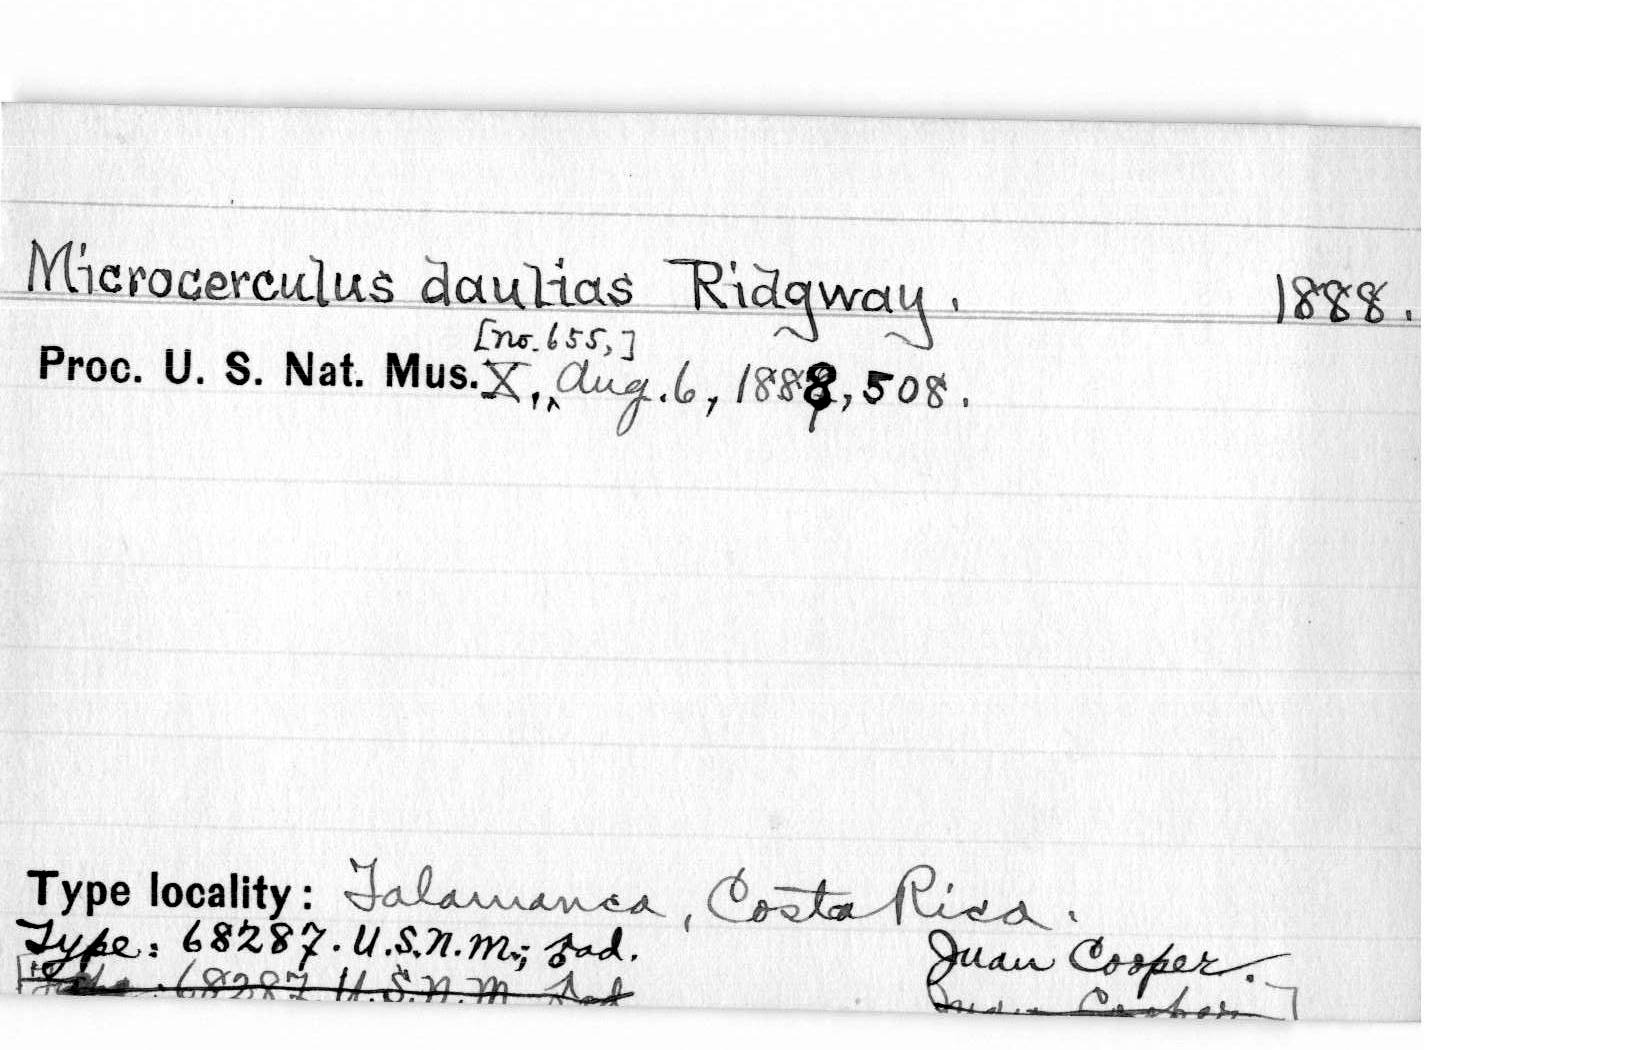 Microcerculus daulias Ridgway. 1888.
[no. 655,]
Proc. U. S. Nat. Mus. X, Aug. 6, 1888, 508.
Type locality: Talamanca, Costa Rica.
Type: 68287. U.S.N.M.; ad. Juan Cooper.
68287 U.S.N.M. Juan Cooper]